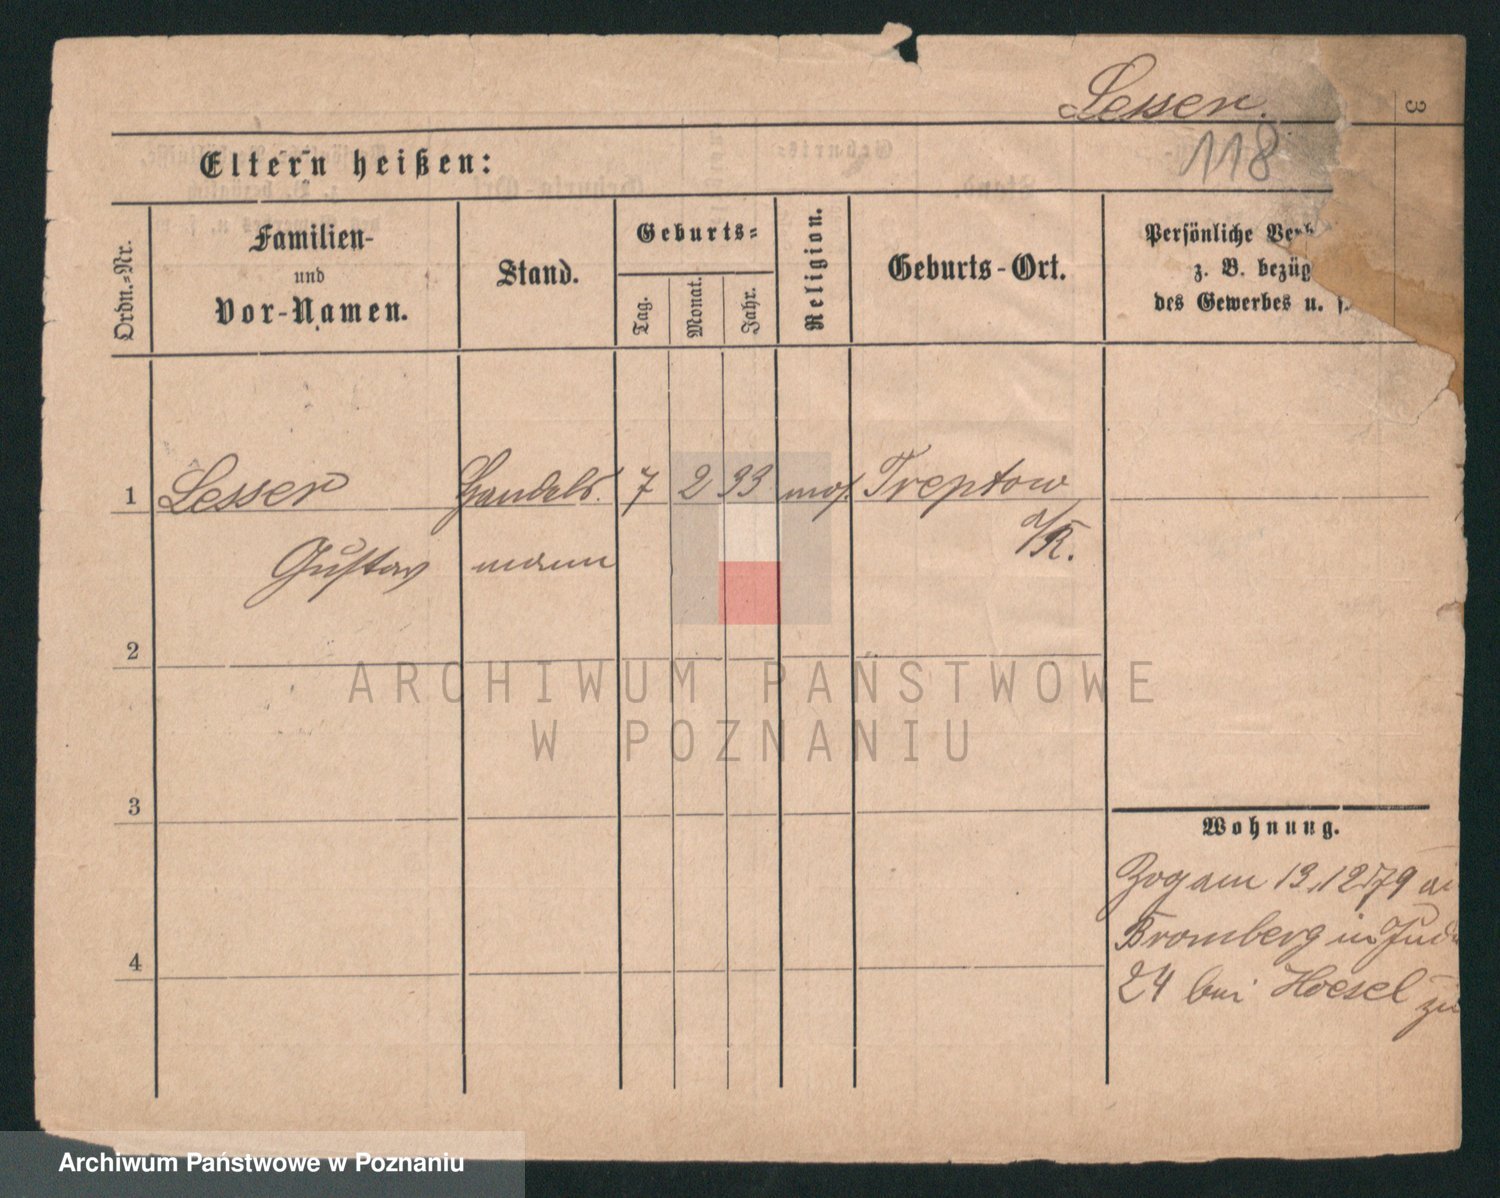 Lesser.
3
118
Eltern heißen:
Ordn.-Nr.
Familien-
und
Vor-Namen.
Stand.
Geburts-
Tag.
Monat.
Jahr.
Religion.
Geburts-Ort.
Persönliche
z. B.
des Gewerbes u.
1 Lesser Handels. 7 2 33 mos. Treptow
a/R.
Gustav mann
2
ARCHIWUM PAŃSTWOWE
W POZNANIU
3
Wohnung.
Zog am 13.12.79
Bromberg in
4
24 bei Hoesel
Archiwum Państwowe w Poznaniu